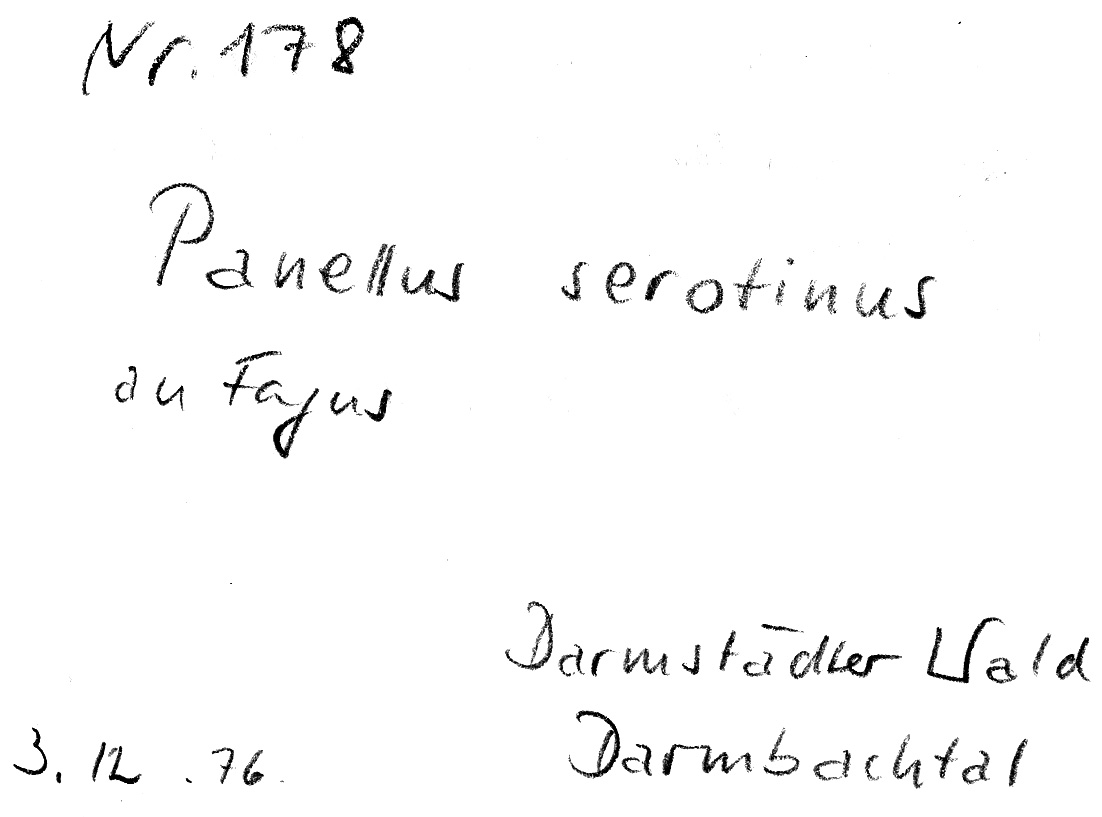 Nr. 178
Panellus serotinus
an Fagus
Darmstädter Wald
3. 12. 76 Darmbachtal